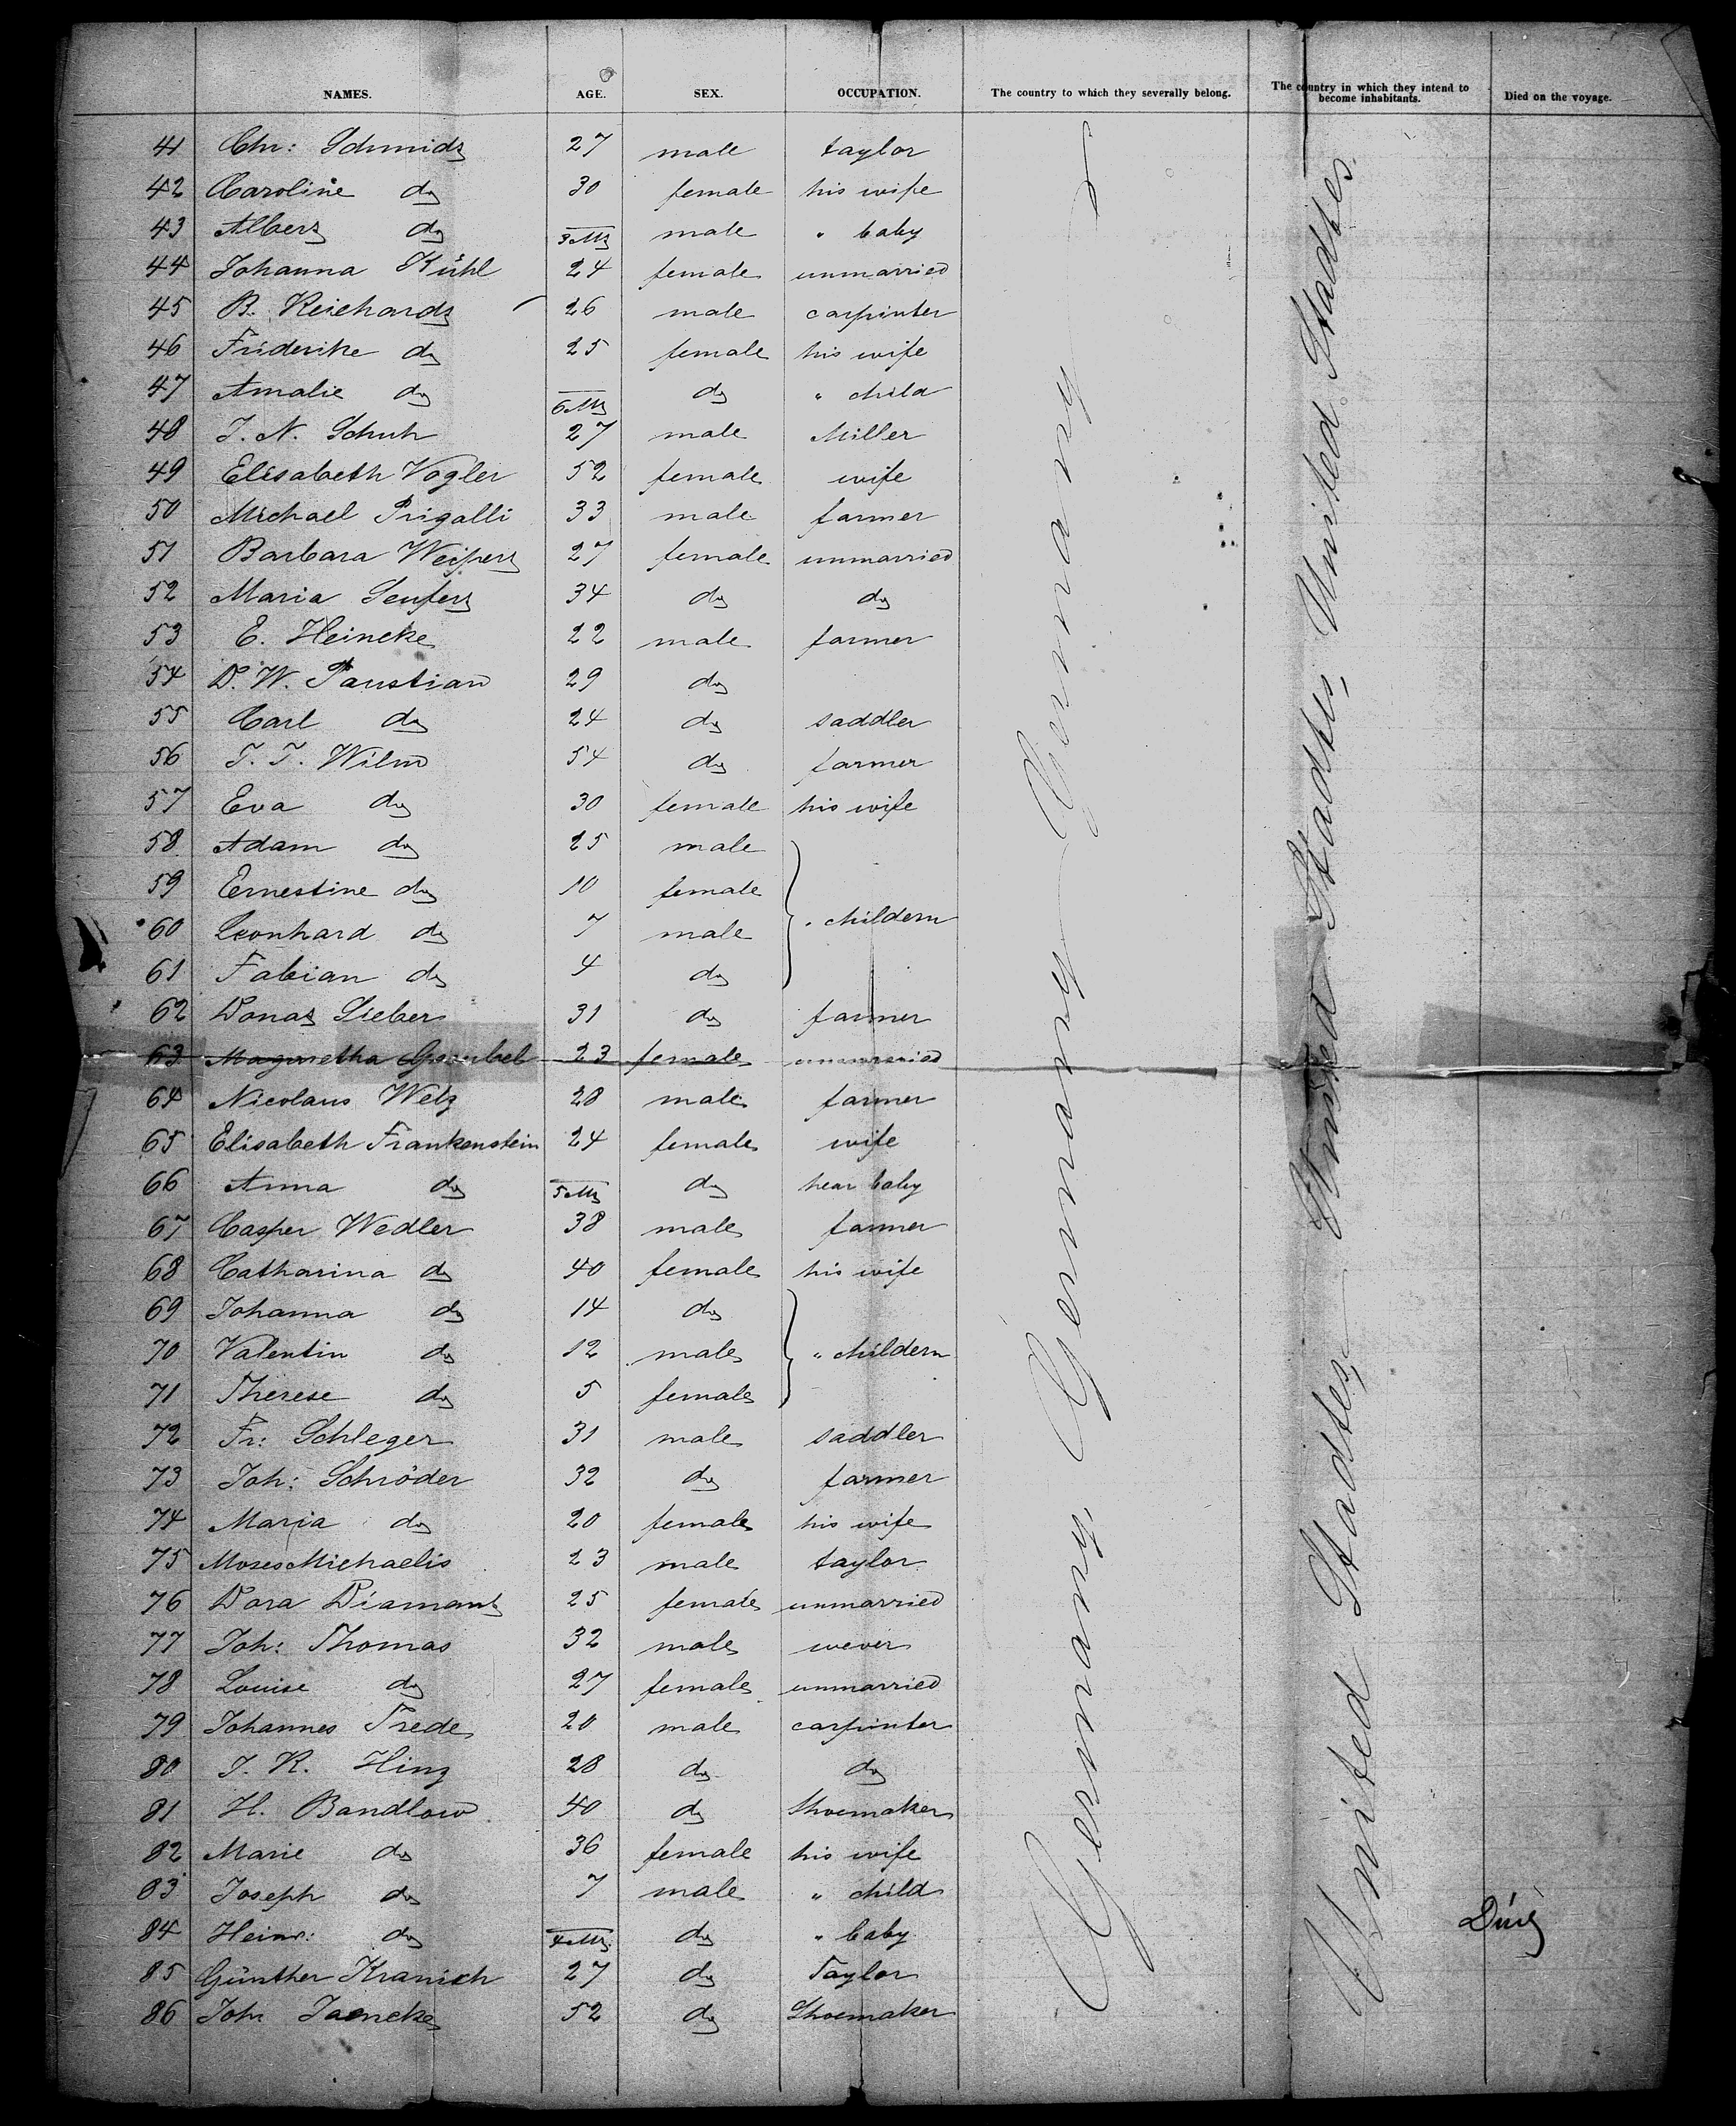 NAMES. AGE. SEX. OCCUPATION. The country to which they severally belong. The country in which they intend to become inhabitants. Died on the voyage.
41 Chr: Schmidt 27 male taylor
42 Caroline do 30 female his wife
43 Albert do 3 Mt male " baby
44 Johanna Kühl 24 female unmarried
45 B. Reichardt 26 male carpinter
46 Friderike do 25 female his wife
47 Amalie do 6 Mt do " child
48 J. N. Schuh 27 male Miller
49 Elisabeth Vogler 52 female wife
50 Michael Prigalli 33 male farmer
51 Barbara Weipert 27 female unmarried
52 Maria Seufert 34 do do
53 E. Heincke 22 male farmer
54 D. W. Paustian 29 do
55 Carl do 24 do saddler
56 J. J. Wilm 54 do farmer
57 Eva do 30 female his wife
58 Adam do 25 male
59 Ernestine do 10 female
60 Leonhard do 7 male " childern
61 Fabian do 4 do
62 Donat Lieber 31 do farmer
63 Magaretha 23 female unmarried
64 Nicolaus Welz 28 male farmer
65 Elisabeth Frankenstein 24 female wife
66 Anna do 5 Mt do hear baby
67 Casper Wedler 38 male farmer
68 Catharina do 40 female his wife
69 Johanna do 14 do
70 Valentin do 12 male " childern
71 Therese do 5 female
72 Fr: Schleger 31 male saddler
73 Joh: Schröder 32 do farmer
74 Maria do 20 female his wife
75 Moses Michaelis 23 male taylor
76 Dora Diamant 25 female unmarried
77 Joh: Thomas 32 male wever
78 Louise do 27 female unmarried
79 Johannes Trede 20 male carpinter
80 J. K. Hinz 28 do do
81 H. Bandlow 40 do Shoemaker
82 Marie do 36 female his wife
83 Joseph do 7 male " child
84 Heinr: do 4 Mt do " baby
85 Günther Kranich 27 do Taylor
86 Joh Jaencke 52 do Shoemaker
Germany, Germany Germany
United Stadtes, United Stadtes, United Stadtes